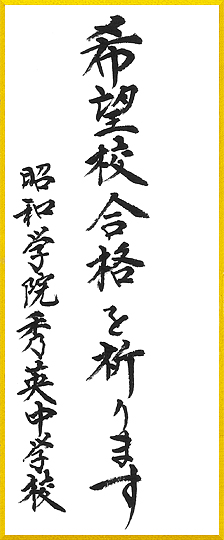 希望校合格を祈ります
昭和学院秀英中学校